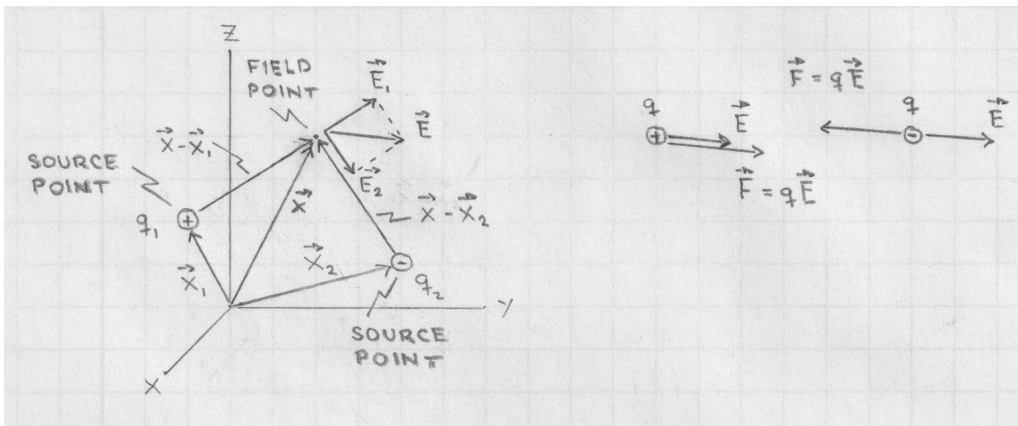 Z
FIELD
POINT
E⃗₁
E⃗
x⃗ - x⃗₁
SOURCE
POINT
q₁
+
E⃗₂
x⃗
x⃗ - x⃗₂
x⃗₁
x⃗₂
-
q₂
Y
SOURCE
POINT
X
q
+
E⃗
F⃗ = qE⃗
F⃗ = qE⃗
q
-
E⃗